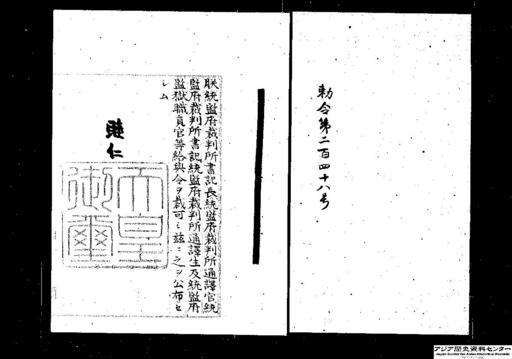 勅令第二百四十八号
朕統監府裁判所書記長統監府裁判所通譯官統
監府裁判所書記統監府裁判所通譯生及統監府
監獄職員官等給與令ヲ裁可シ茲ニ之ヲ公布セ
シム
睦仁
天皇
御璽
アジア歴史資料センター
Japan Center for Asian Historical Records